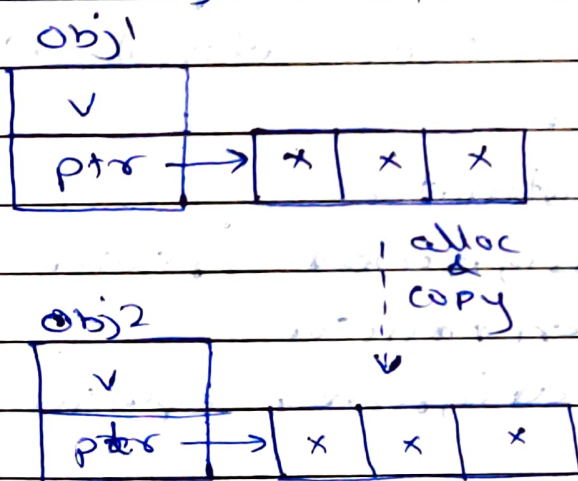 Obj1
v
ptr → x x x
alloc
&
copy
Obj2
v
ptr → x x x